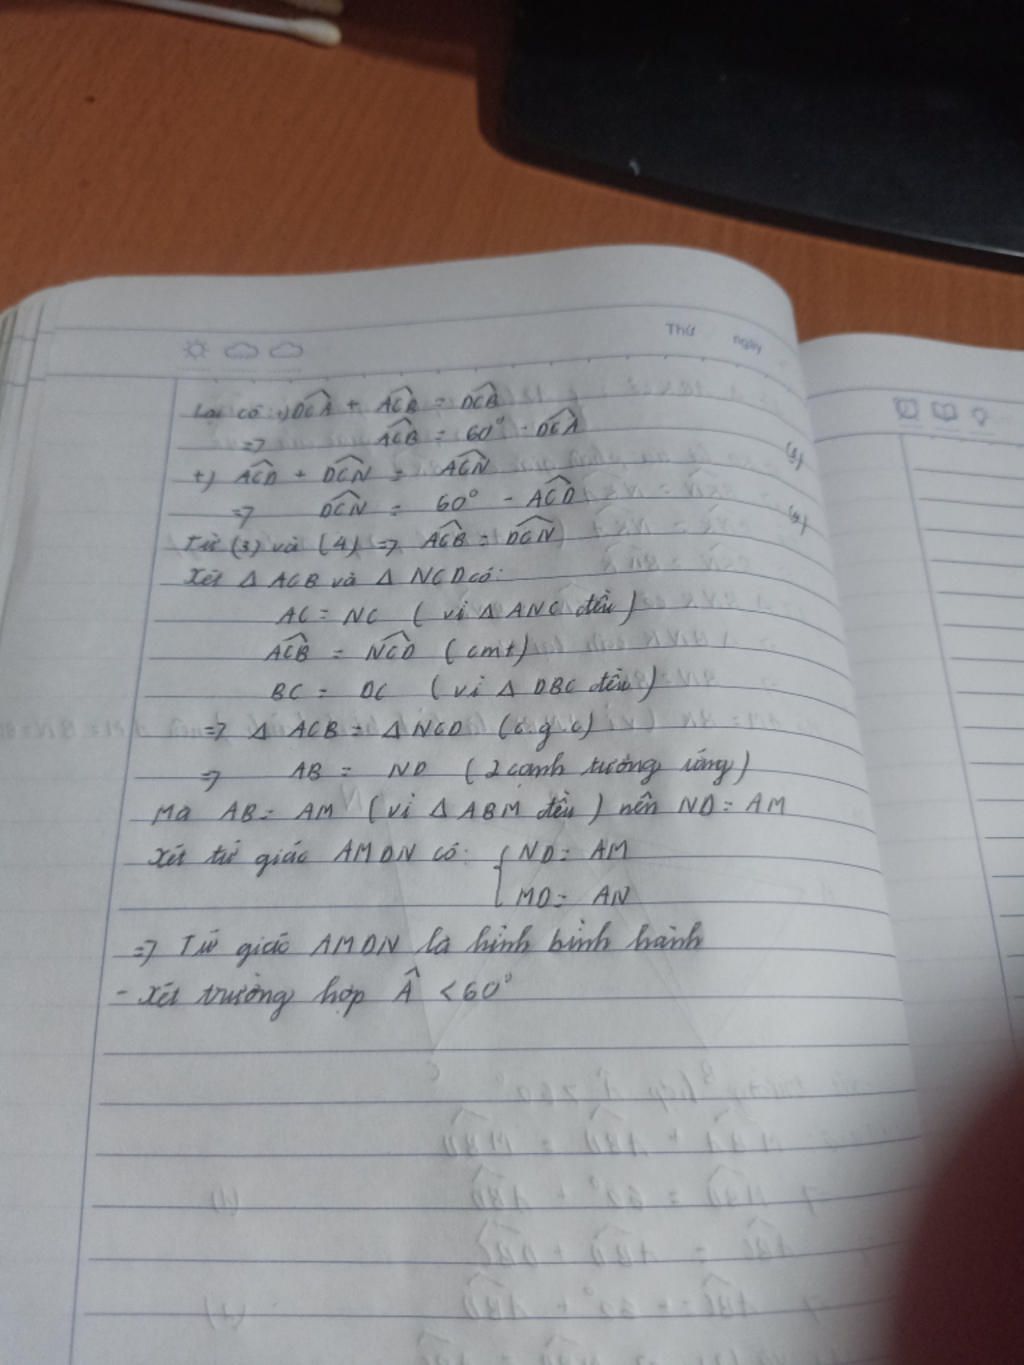 Thứ ngày
Lại có: +) DĈA + AĈB = DĈB
=> AĈB = 60° - DĈA (3)
+) AĈD + DĈN = AĈN
=> DĈN = 60° - AĈD (4)
Từ (3) và (4) => AĈB = DĈN
Xét Δ ACB và Δ NCD có:
AC = NC (vì Δ ANC đều)
AĈB = NĈD (cmt)
BC = DC (vì Δ DBC đều)
=> Δ ACB = Δ NCD (c.g.c)
=> AB = ND (2 cạnh tương ứng)
Mà AB = AM (vì Δ ABM đều) nên ND = AM
Xét tứ giác AMDN có: { ND = AM
MD = AN
=> Tứ giác AMDN là hình bình hành
- Xét trường hợp Â < 60°